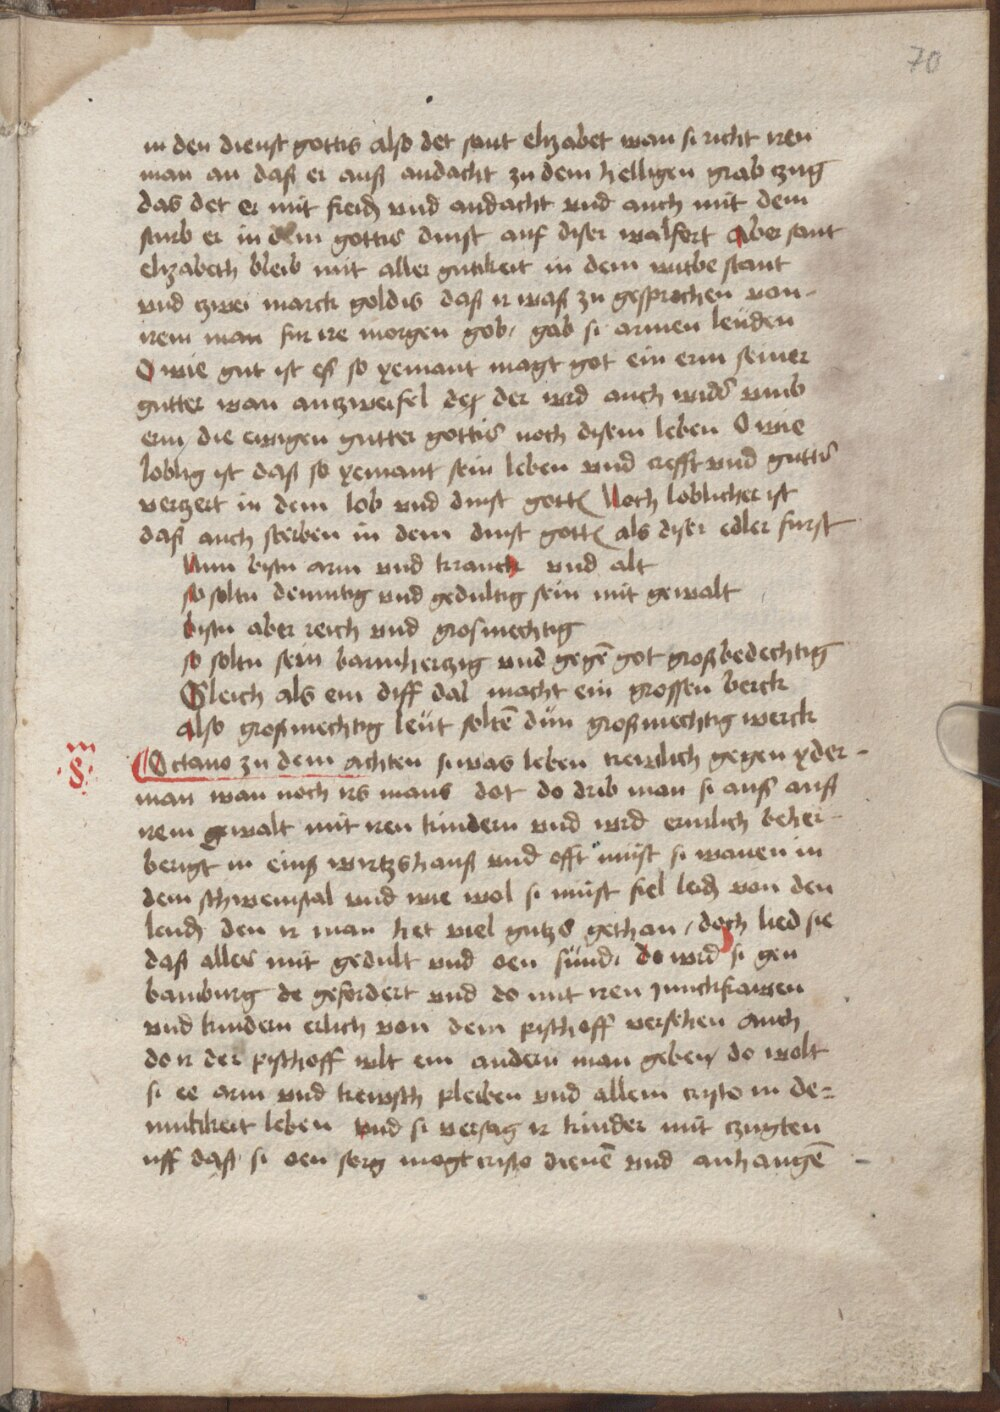 70
in den dienst gottis also det sant elizabet wan si richt iren
man an daß er auß andacht zu dem helligen grab czug
das det er mit freid vnd andacht vnd auch mit dem
starb er in dem gottis dinst auf diser walfort Aber sant
elizabeth bleib mit aller gutikeit in dem witbe stant
vnd czwei marck goldis daß ir waß zu gesprochen von
irem man fur ire morgen gob / gab si armen leuden
O wie gut ist eß so yemant magt got ein erm seiner
gutter wan anzweifel der wird auch wids vmb
erm die ewigen gutter gottis noch disem leben O wie
loblig ist daß so yemant sein leben vnd crefft vnd guttis
verzert in dem lob vnd dinst gott Noch loblicher ist
daß auch sterben in dem dinst gott als diser edler furst
Nun bistu arm vnd kranck vnd alt
so soltu demutig vnd gedultig sein mit gewalt
bistu aber reich vnd grosmechtig
so soltu sein barmhertzig vnd gegē got groß bedechtig
Gleich als ein diff dal macht ein grossen berck
Also großmechtig leüt soltē dün großmechtig werck
m
8
Octavo zu dem achten si was leben trewlich gegen yder-
man wan noch irs mans dot do drib man si auß auß
irem gewalt mit iren kindern vnd wird ermlich beher-
bergt in einß wirtzshauß vnd offt must si wanen in
dem schweinstal vnd wie wol si müst fiel leid von den
leud den ir man het viel gutzs gethan / doch lied sie
daß alles mit gedult vnd oen sünd do wird si gen
bamburg de gefordert vnd do mit iren junckfrawen
vnd kindern erlich von dem pischoff versehen Auch
do ir der pischoff wlt ein andern man geben / do wolt
si ee arm vnd kewsch pleiben vnd allein cristo in de=
mutikeit leben vnd si versag ir kinder mit czugten
uff daß si oen sorg mogt cristo dienē vnd anhangē